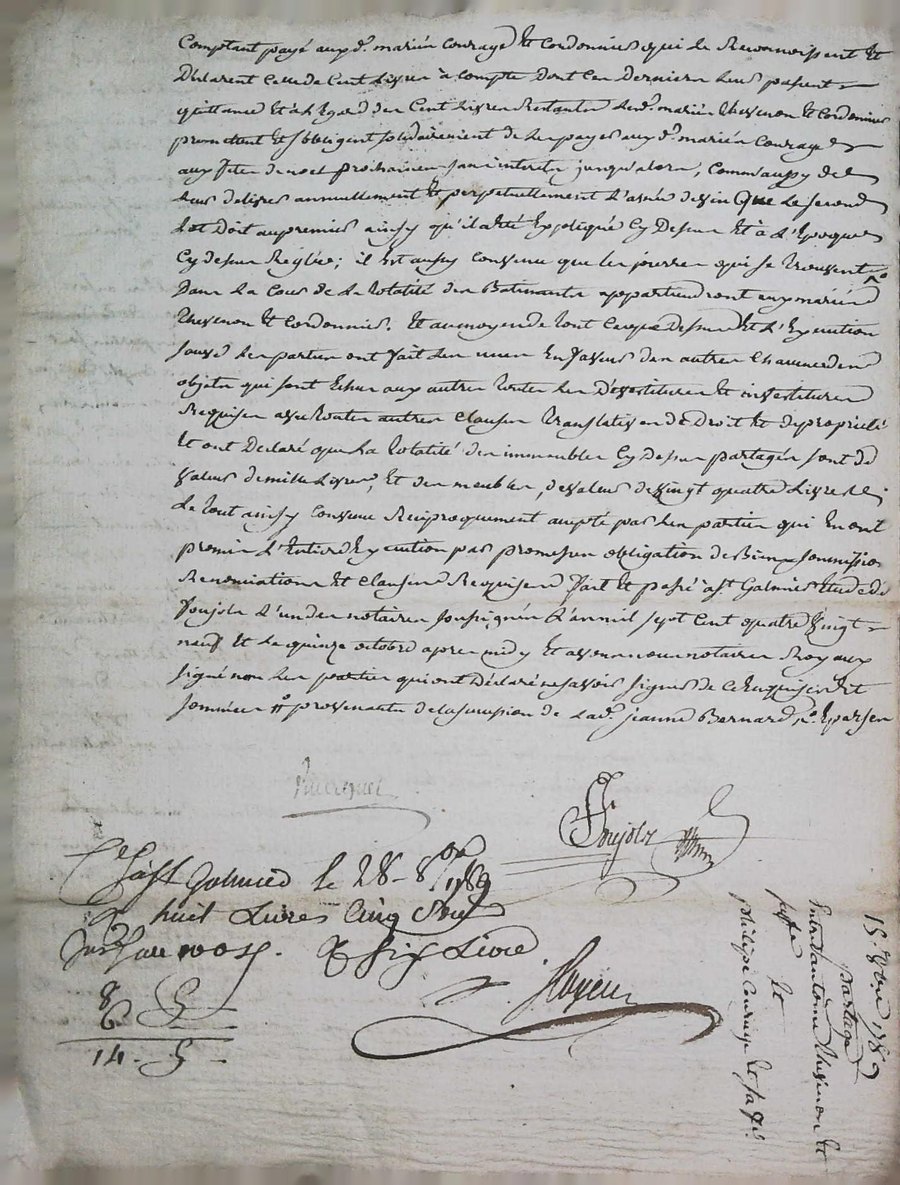 Comptant payé aux d. mariés Courage Et Cordonnier qui Le Reconnoissent Et
Declarent Celle de Cent Livres à compte Dont Ces Derniers Leur passent
quittance Et à L'Egard des Cent Livres Restantes Les d. mariés Thevenon Et Cordonnier
promettent Et s'obligent solidairement de Les payer aux d. mariés Courage
aux fetes de noel prochaines sans interets jusqu'alors, Comm'aussy de
Leur delivrer annuellement Et perpetuellement L'anée de vin Que Le second
Lot Doit au premier ainsy qu'il a été Expliqué Cy Dessus Et à L'Epoque
Cy dessus Reglée; il Est aussy Convenu que les pierres qui se trouvent
Dans La Cour de La totalité des Batiments appartiendront aux mariés
Thevenon Et Cordonnier. Et au moyen de tout Ce que Dessus Et L'Execution
Les parties ont fait Les unes En faveur des autres Chacune des
objets qui sont Echus aux autres toutes Les Devestitures Et investitures
Requises avec toutes autres Clauses translatives de Droit Et de proprieté
Et ont Declaré que La totalité des immeubles Cy Dessus partagés sont de
valeur de mille Livres, Et des meubles, de valeur de vingt quatre Livres
Le tout ainsy Convenu Reciproquement accepté par Les parties qui En ont
promis L'Entiere Execution par promesses obligation de Biens soumissions
Renonciations Et Clauses Requises fait Et passé à St Galmier Etude de
Poujolz L'un des notaires soussignés L'an mil sept Cent quatre vingt
neuf Et Le quinze octobre apres midy Et avons nous notaires Royaux
signé non Les parties qui ont Déclaré ne savoir signer de Ce Enquises Et
sommées provenants de la succession de Lad. jeanne Bernard
Poujolz
à St Galmier le 28 8bre 1789
R huit Livres Cinq Sous
six Livre
8 5
6
14 5
15 8bre 1789
partage
Entre antoine Thevenon Et
sa fe Et
philipe Courage Et sa fe